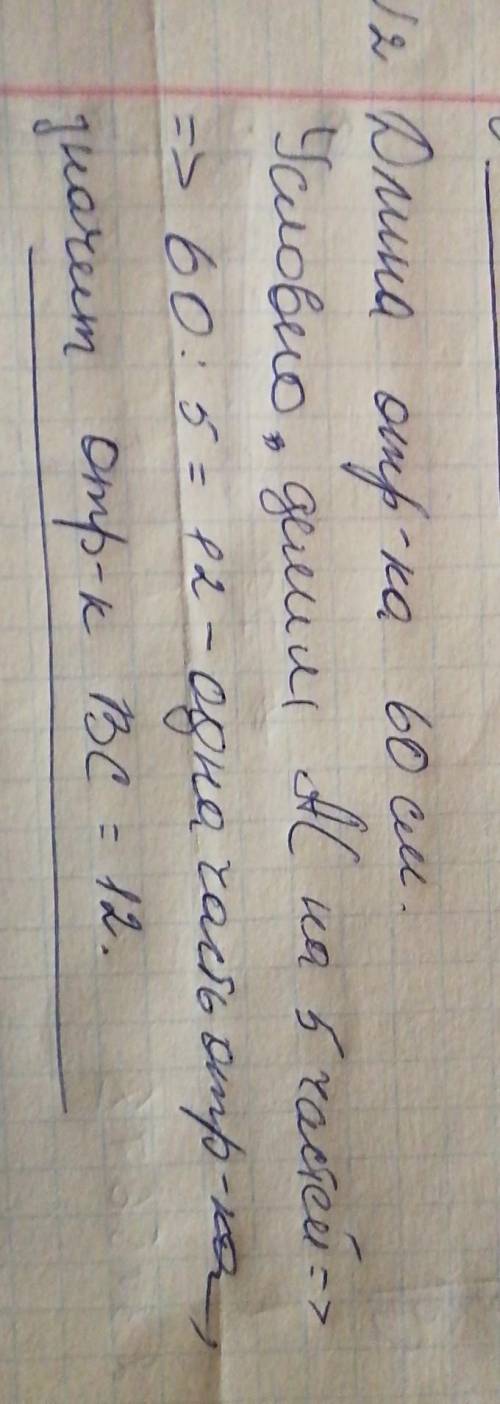 √2 Длина отр-ка 60 см.
Условно, делим АС на 5 частей =>
=> 60 : 5 = 12 - одна часть отр-ка,
значит отр-к ВС = 12.